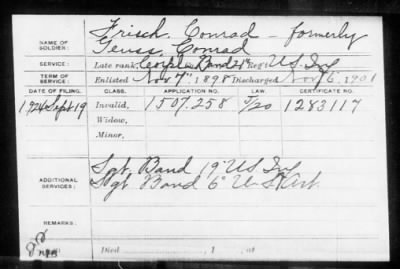 Frisch, Conrad - formerly
NAME OF SOLDIER: Conrad
SERVICE: Late rank, Corpl Band 21st Reg't U.S. Inf
TERM OF SERVICE: Enlisted Nov 7", 1898 Discharged Nov 6, 1901
DATE OF FILING. CLASS. APPLICATION NO. LAW. CERTIFICATE NO.
1924 Sept 19 Invalid, 1507.258 5/20 1283117
Widow,
Minor,
Sgt. Band 19" US Inf
ADDITIONAL SERVICES: Sgt Band 6" U S Art.
REMARKS:
Died , 1 , at